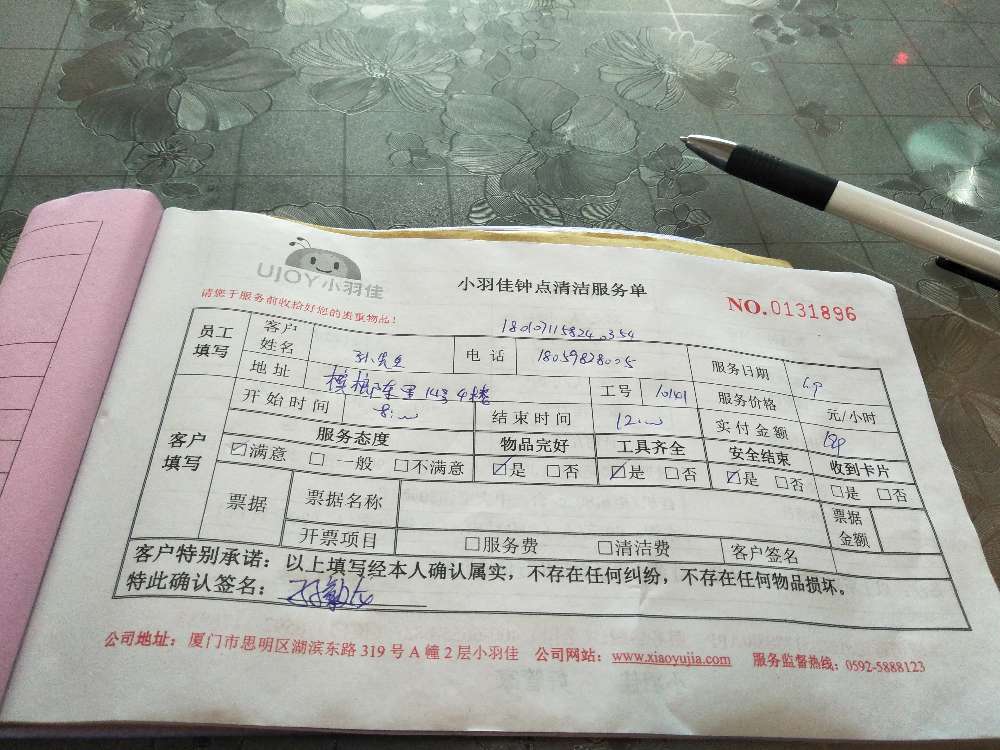 UJOY小羽佳
小羽佳钟点清洁服务单
NO.0131896
请您于服务前收拾好您的贵重物品!
员工填写 客户姓名 孙先生 电话 服务日期
地址 14号4楼 工号 服务价格 元/小时
开始时间 8:00 结束时间 12:00 实付金额
客户填写 服务态度 物品完好 工具齐全 安全结束 收到卡片
☑满意 □一般 □不满意 ☑是 □否 ☑是 □否 ☑是 □否 □是 □否
票据 票据名称 票据金额
开票项目 □服务费 □清洁费 客户签名
客户特别承诺:以上填写经本人确认属实,不存在任何纠纷,不存在任何物品损坏。
特此确认签名:
公司地址:厦门市思明区湖滨东路319号A幢2层小羽佳 公司网站:www.xiaoyujia.com 服务监督热线:0592-5888123